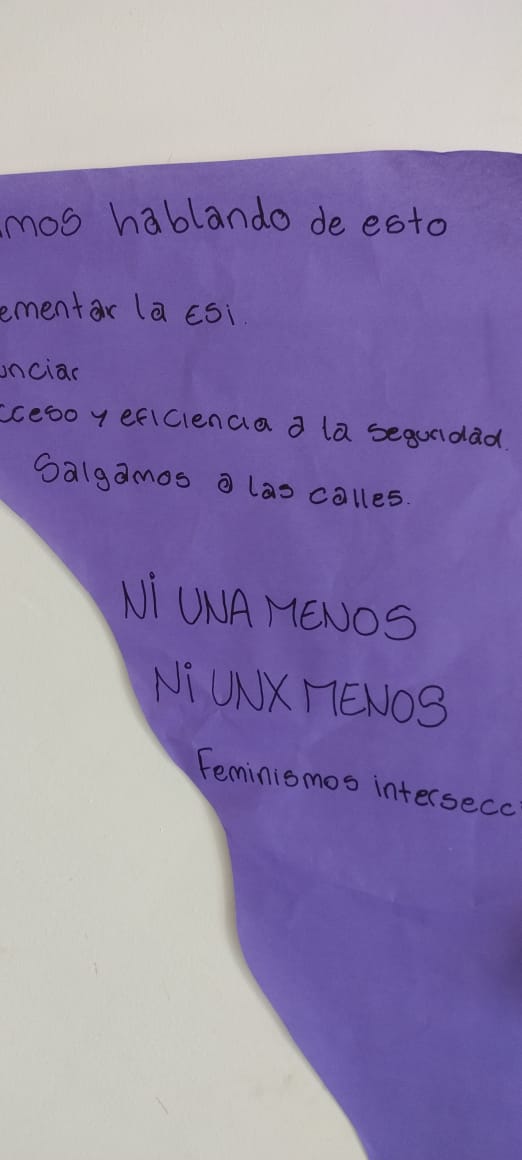 mos hablando de esto
ementar la ESi.
unciar
cceso y eficiencia a la seguridad.
Salgamos a las calles.
Ni UNA MENOS
Ni UNX MENOS
Feminismos intersecc